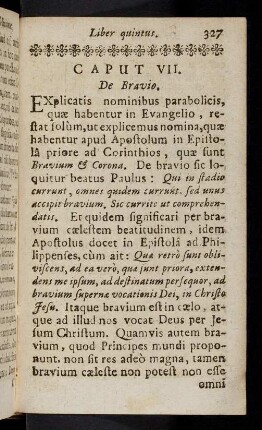 Liber quintus. 327
CAPUT VII.
De Bravio.
EXplicatis nominibus parabolicis,
quæ habentur in Evangelio, re-
stat solùm, ut explicemus nomina, quæ
habentur apud Apostolum in Episto-
lâ priore ad Corinthios, quæ sunt
Bravium & Corona. De bravio sic lo-
quitur beatus Paulus: Qui in stadio
currunt, omnes quidem currunt, sed unus
accipit bravium. Sic currite ut comprehen-
datis. Et quidem significari per bra-
vium cælestem beatitudinem, idem
Apostolus docet in Epistolâ ad Phi-
lippenses, cùm ait: Quæ retrò sunt obli-
viscens, ad ea verò, quæ sunt priora, exten-
dens me ipsum, ad destinatum persequor, ad
bravium supernæ vocationis Dei, in Christo
Jesu. Itaque bravium est in cælo, at-
que ad illud nos vocat Deus per Je-
sum Christum. Quamvis autem bra-
vium, quod Principes mundi propo-
nunt, non sit res adeò magna, tamen
bravium cæleste non potest non esse
omni